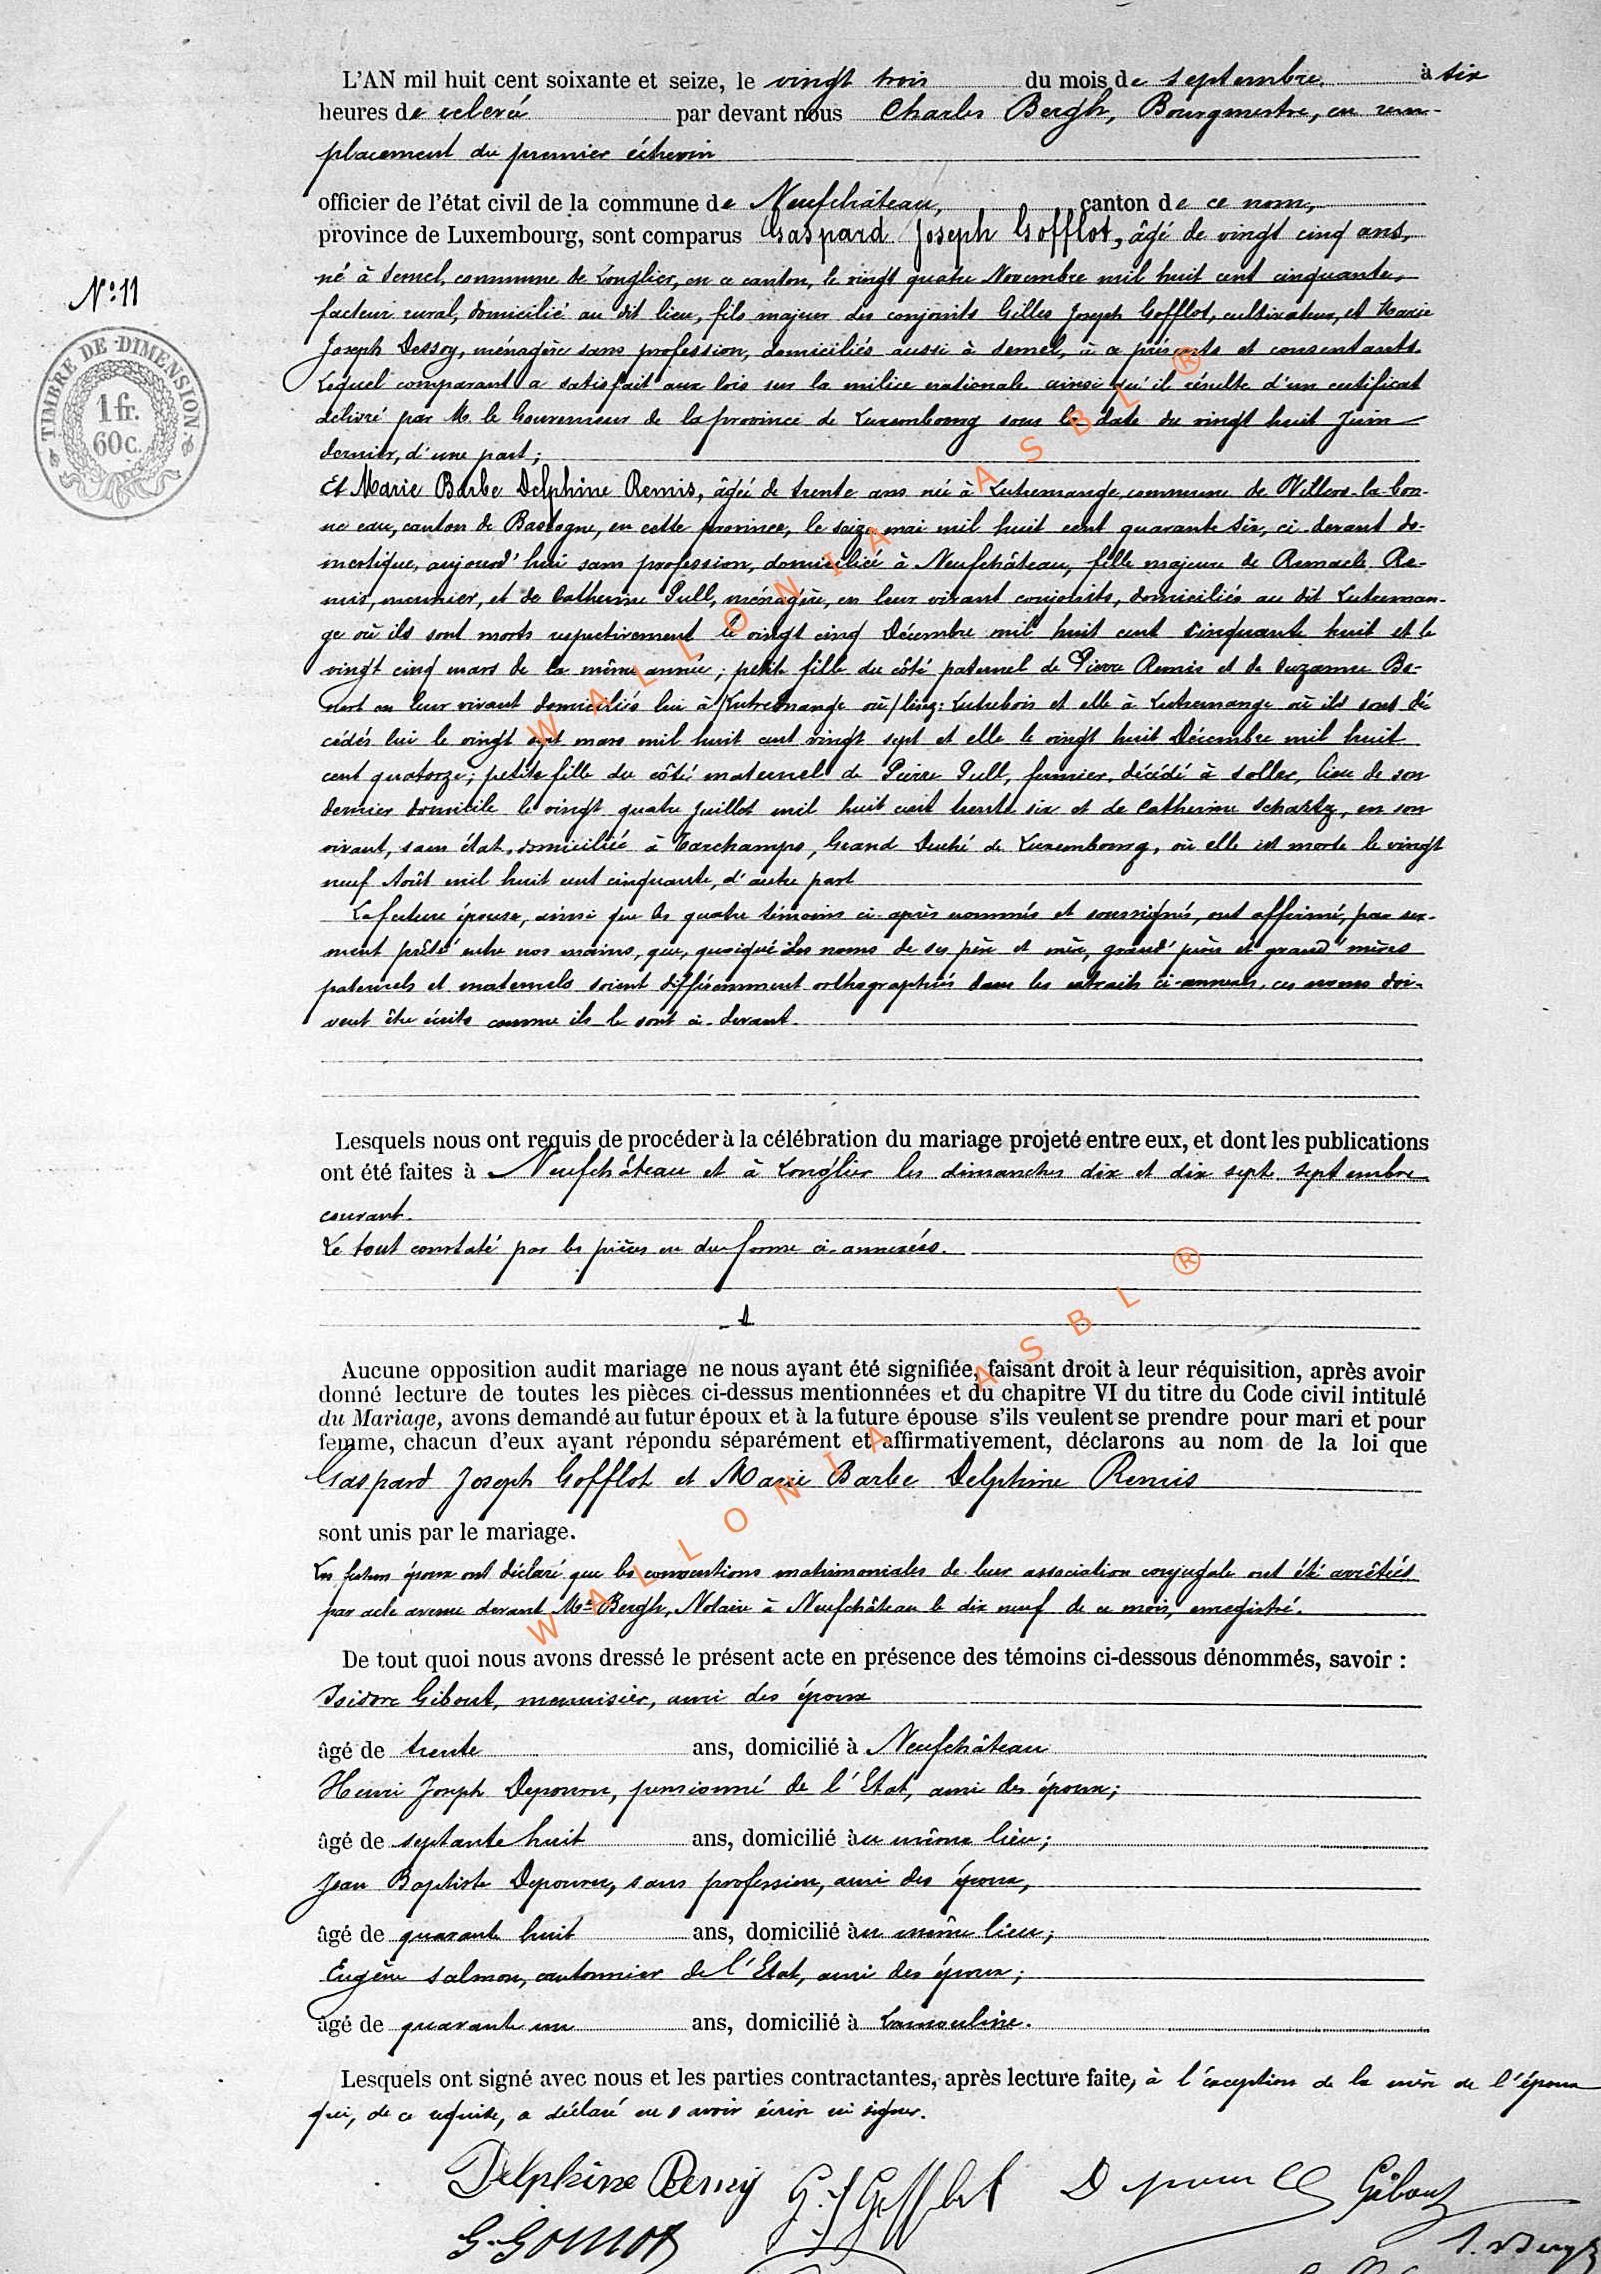 L'AN mil huit cent soixante et seize, le vingt trois du mois de septembre à six
heures de relevée par devant nous Charles Bergh, Bourgmestre, en rem-
placement du premier échevin
officier de l'état civil de la commune de Neufchâteau, canton de ce nom,
province de Luxembourg, sont comparus Gaspard Joseph Gofflot, âgé de vingt cinq ans,
né à Semel, commune de Longlier, en ce canton, le vingt quatre Novembre mil huit cent cinquante,
N° 11
facteur rural, domicilié au dit lieu, fils majeur des conjoints Gilles Joseph Gofflot, cultivateur, et Marie
Joseph Dessoy, ménagère sans profession, domiciliés aussi à Semel, à ce présents et consentants.
TIMBRE DE DIMENSION
1 fr.
60 c.
Lequel comparant a satisfait aux lois sur la milice nationale ainsi qu'il résulte d'un certificat
délivré par M. le Gouverneur de la province de Luxembourg sous la date du vingt huit Juin
dernier, d'une part;
Et Marie Barbe Delphine Remis, âgée de trente ans née à Lutremange, commune de Villers-la-bon-
ne eau, canton de Bastogne, en cette province, le seize mai mil huit cent quarante six, ci-devant do-
mestique, aujourd'hui sans profession, domiciliée à Neufchâteau, fille majeure de Remacle Re-
mis, meunier, et de Catherine Pull, ménagère, en leur vivant conjoints, domiciliés au dit Lutreman-
ge où ils sont morts respectivement le vingt cinq Décembre mil huit cent cinquante huit et le
vingt cinq mars de la même année; petite fille du côté paternel de Pierre Remis et de Suzanne Be-
nert en leur vivant domiciliés lui à /Lutremange où/ lisez: Lutrebois et elle à Lutremange où ils sont dé
cédés lui le vingt sept mars mil huit cent vingt sept et elle le vingt huit Décembre mil huit
cent quatorze; petite fille du côté maternel de Pierre Pull, fermier, décédé à Soller, lieu de son
dernier domicile le vingt quatre Juillet mil huit cent trente six et de Catherine Schartz, en son
vivant, sans état, domiciliée à Tarchamps, Grand Duché de Luxembourg, où elle est morte le vingt
neuf Août mil huit cent cinquante, d'autre part
La future épouse, ainsi que les quatre témoins ci-après nommés et soussignés, ont affirmé, par ser-
ment prêté entre nos mains, que, quoique les noms de ses père et mère, grand'pères et grand'mères
paternels et maternels soient différemment orthographiés dans les extraits ci-annexés, ces noms doi-
vent être écrits comme ils le sont ci-devant.
Lesquels nous ont requis de procéder à la célébration du mariage projeté entre eux, et dont les publications
ont été faites à Neufchâteau et à Longlier les dimanches dix et dix sept septembre
courant.
Le tout constaté par les pièces en due forme ci-annexées.
Aucune opposition audit mariage ne nous ayant été signifiée, faisant droit à leur réquisition, après avoir
donné lecture de toutes les pièces ci-dessus mentionnées et du chapitre VI du titre du Code civil intitulé
du Mariage, avons demandé au futur époux et à la future épouse s'ils veulent se prendre pour mari et pour
femme, chacun d'eux ayant répondu séparément et affirmativement, déclarons au nom de la loi que
Gaspard Joseph Gofflot et Marie Barbe Delphine Remis
sont unis par le mariage.
Les futurs époux ont déclaré que les conventions matrimoniales de leur association conjugale ont été arrêtées
par acte avenu devant Me Bergh, Notaire à Neufchâteau le dix neuf de ce mois, enregistré.
De tout quoi nous avons dressé le présent acte en présence des témoins ci-dessous dénommés, savoir :
Isidore Gibout, menuisier, ami des époux
âgé de trente ans, domicilié à Neufchâteau
Henri Joseph Depouru, pensionné de l'Etat, ami des époux;
âgé de septante huit ans, domicilié au même lieu;
Jean Baptiste Depouru, sans profession, ami des époux,
âgé de quarante huit ans, domicilié au même lieu;
Eugène Salmon, cantonnier de l'Etat, ami des époux;
âgé de quarante un ans, domicilié à Lamouline.
Lesquels ont signé avec nous et les parties contractantes, après lecture faite, à l'exception de la mère de l'époux
qui, de ce requise, a déclaré ne savoir écrire ni signer.
Delphine Remy G. J Gofflot Gibout
WALLONIA ASBL ®
WALLONIA ASBL ®